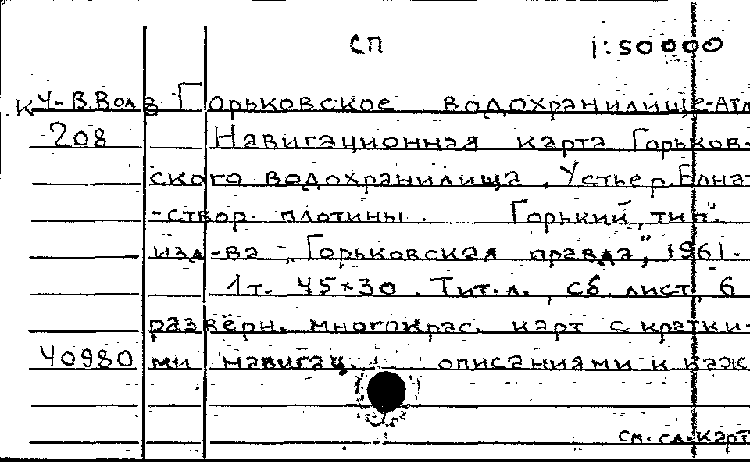 СП 1:50000
К Ч-В.Вол Горьковское водохранилище-Атл
208 Навигационная карта Горьков-
ского водохранилища, Устье р. Елнат
-створ. плотины. Горький, тип.
изд-ва "Горьковская правда", 1961.
1т. 45×30. Тит.л., сб. лист, 6
развёрн. многокрас. карт с кратки-
40980 ми навигац. описаниями к каж
см. сл. карт